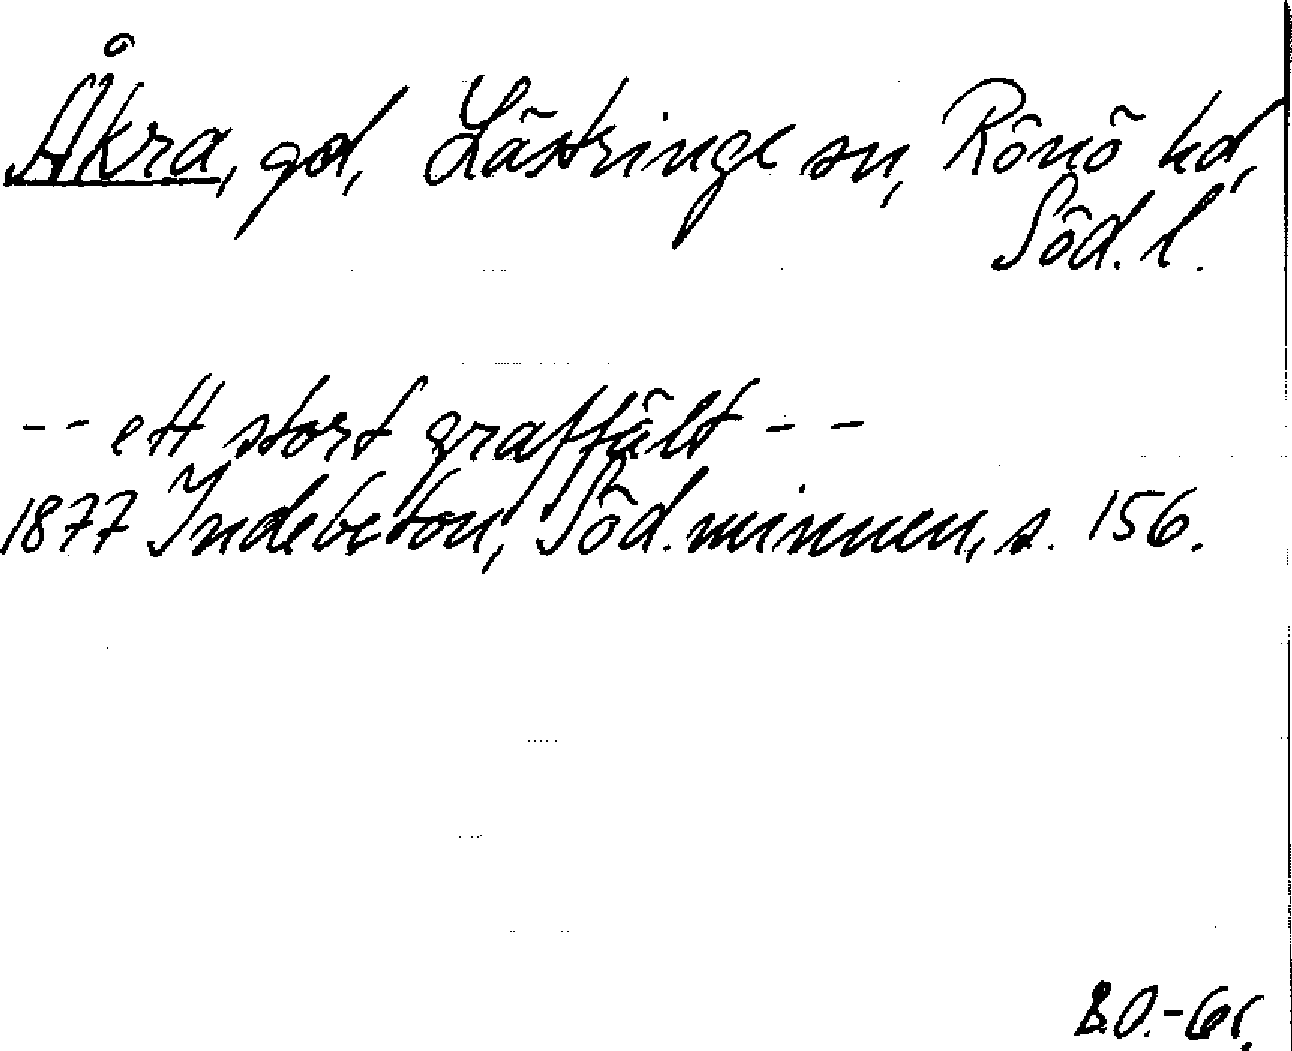 Åkra, gd, Lästringe sn, Rönö hd,
Söd. l.
-- ett stort graffält --
1877 Indebetou, Söd. minnen, s. 156.